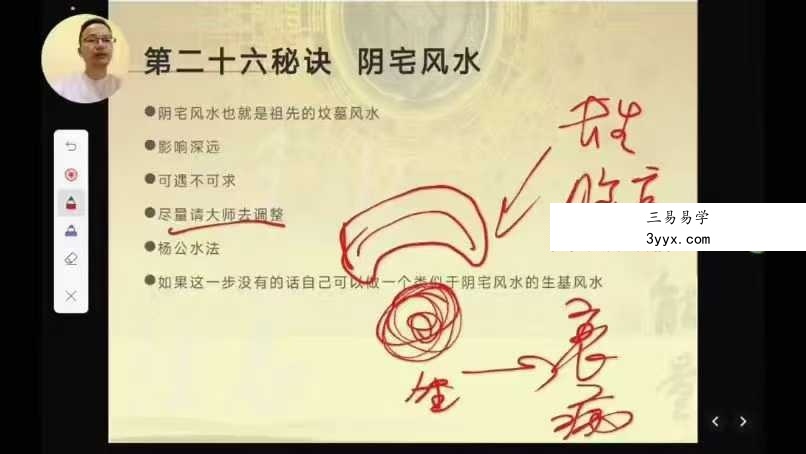 第二十六秘诀 阴宅风水
●阴宅风水也就是祖先的坟墓风水
●影响深远
●可遇不可求
●尽量请大师去调整
●杨公水法
●如果这一步没有的话自己可以做一个类似于阴宅风水的生基风水
长生
三易易学
3yyx.com
衰
病
能量